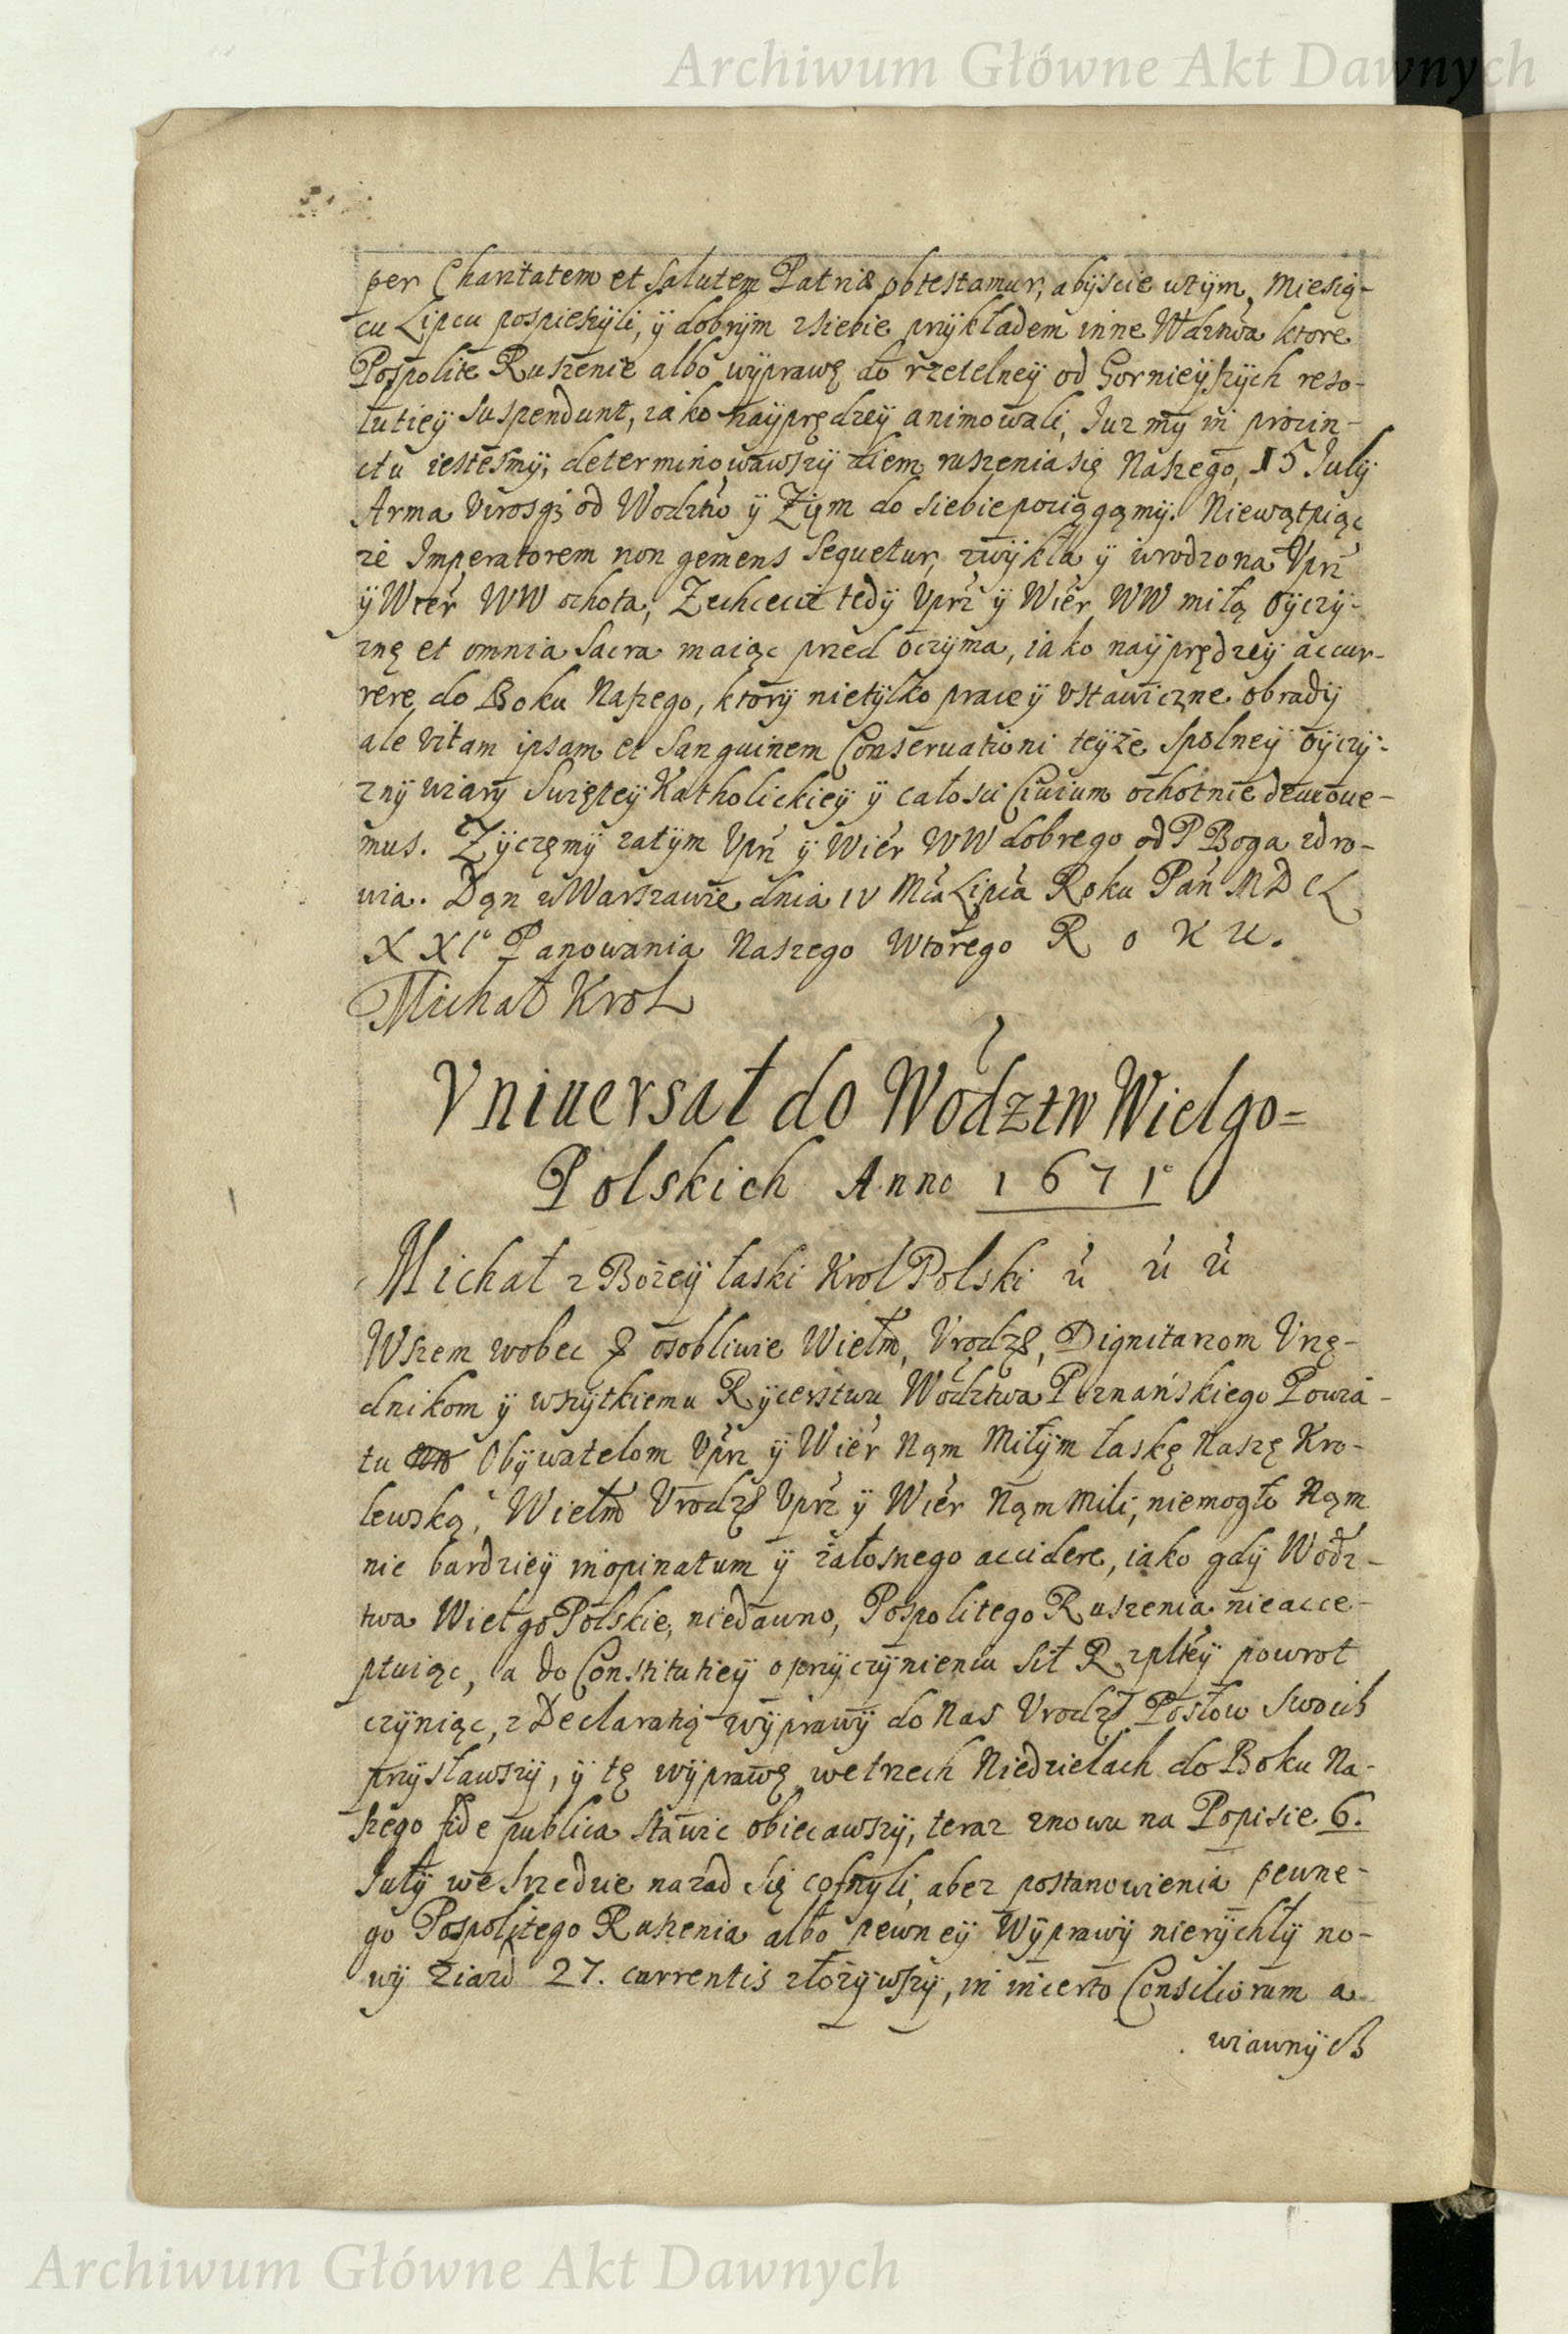 Archiwum Główne Akt Dawnych
per Charitatem et Salutem Patriæ obtestamur, abyscie wtÿm Miesią-
cu Lipcu pospieszÿli, ÿ dobrÿm zsiebie przÿkładem inne Wdztwa ktore
Pospolite Ruszenie albo wÿprawę do rzetelneÿ od Gornieÿszÿch reso-
lutieÿ suspendunt, iako naÿprędzeÿ animowali, Iuz mÿ in procin-
ctu iestesmÿ, determinowawszÿ diem ruszenia się Naszego, 15 Julÿ
Arma Virosqz od Wodztw ÿ Zięm do siebie pociągąmÿ. Niewątpiąc
ze Imperatorem non gemens sequetur, zwÿkła ÿ wrodzona Uprz
ÿ Wier WW ochota, Zechcecie tedÿ Uprz ÿ Wier WW miłą Oÿczÿ-
znę et omnia Sacra maiąc przed oczÿma, iako naÿprędzeÿ accur-
rere do Boku Naszego, ktorÿ nietÿlko prace ÿ ustawiczne obradÿ
ale Vitam ipsam et Sanguinem Conseruationi teÿze Spolneÿ Oÿczÿ-
znÿ wiarÿ Swięteÿ Katholickieÿ ÿ całosci Ciuium ochotnie deuoue-
mus. Zÿczęmÿ zatÿm Uprz ÿ Wier WW dobrego od P Boga zdro-
wia. Dąn w Warszawie dnia IV Mca Lipca Roku Pan MDCL
XXI° Panowania Naszego Wtorego Roku.
Michał Krol
Vniuersał do Wodztw Wielgo=
Polskich Anno 1671°
Michał z Bozeÿ łaski Krol Polski ú ú ú
Wszem wobec & osobliwie Wielm, Vrodz, Dignitarzom Vrzę-
dnikom ÿ wszÿtkiemu Rÿcerstwu Wodztwa Poznańskiego Powia-
tu Obÿwatelom Uprz ÿ Wier Nąm Miłÿm łaskę Naszę Kro-
lewską, Wielm Vrodz Uprz ÿ Wier Nąm Mili, niemogło Nąm
nic bardzieÿ inopinatum ÿ załosnego accidere, iako gdÿ Wodz-
twa Wielgo Polskie, niedawno, Pospolitego Ruszenia nie acce-
ptuiąc, a do Constitutieÿ o przÿczÿnieniu sił Rzplteÿ powrot
czÿniąc, z Declaratią wÿprawÿ do Nas Vrodz Posłow swoich
przÿsławszÿ, ÿ tę wÿprawę wetrzech Niedzielach do Boku Na-
szego fide publica stawic obiecawszÿ, teraz znowu na Popisie 6.
Julÿ we Srzedzie nazad się cofnyli, abez postanowienia pewne-
go Pospolitego Ruszenia albo pewneÿ Wÿprawÿ nierÿchłÿ no-
wÿ ziazd 27. currentis złozÿwszÿ, in incerto Consiliorum a
wiawnÿch
Archiwum Główne Akt Dawnych